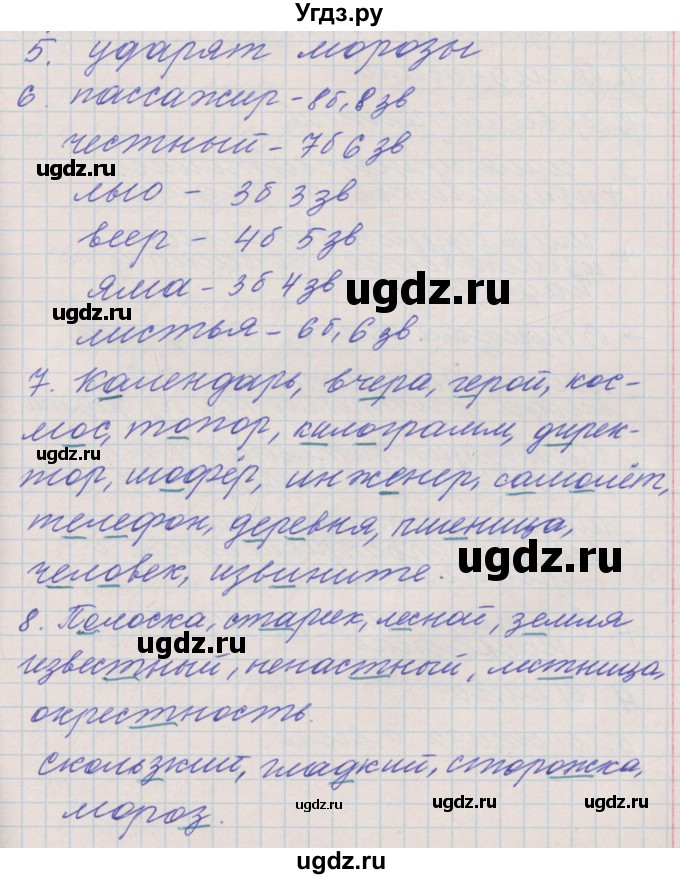 Угдз.ру
5. ударят морозы
6. пассажир - 8б, 8 зв
честный - 7б 6 зв
ugdz.ru
лью - 3б 3 зв
веер - 4б 5 зв
яма - 3б 4 зв
ugdz.ru
ugdz.ru
листья - 6б, 6 зв.
7. Календарь, вчера, герой, кос-
мос, топор, килограмм, дирек-
ugdz.ru
тор, шофёр, инженер, самолёт,
телефон, деревня, пшеница,
ugdz.ru
человек, извините.
8. Полоска, старик, лесной, земля
ugdz.ru
известный, ненастный, лестница,
окрестность.
скользкий, гладкий, сторожка,
мороз.
ugdz.ru
ugdz.ru
ugdz.ru
ugdz.ru